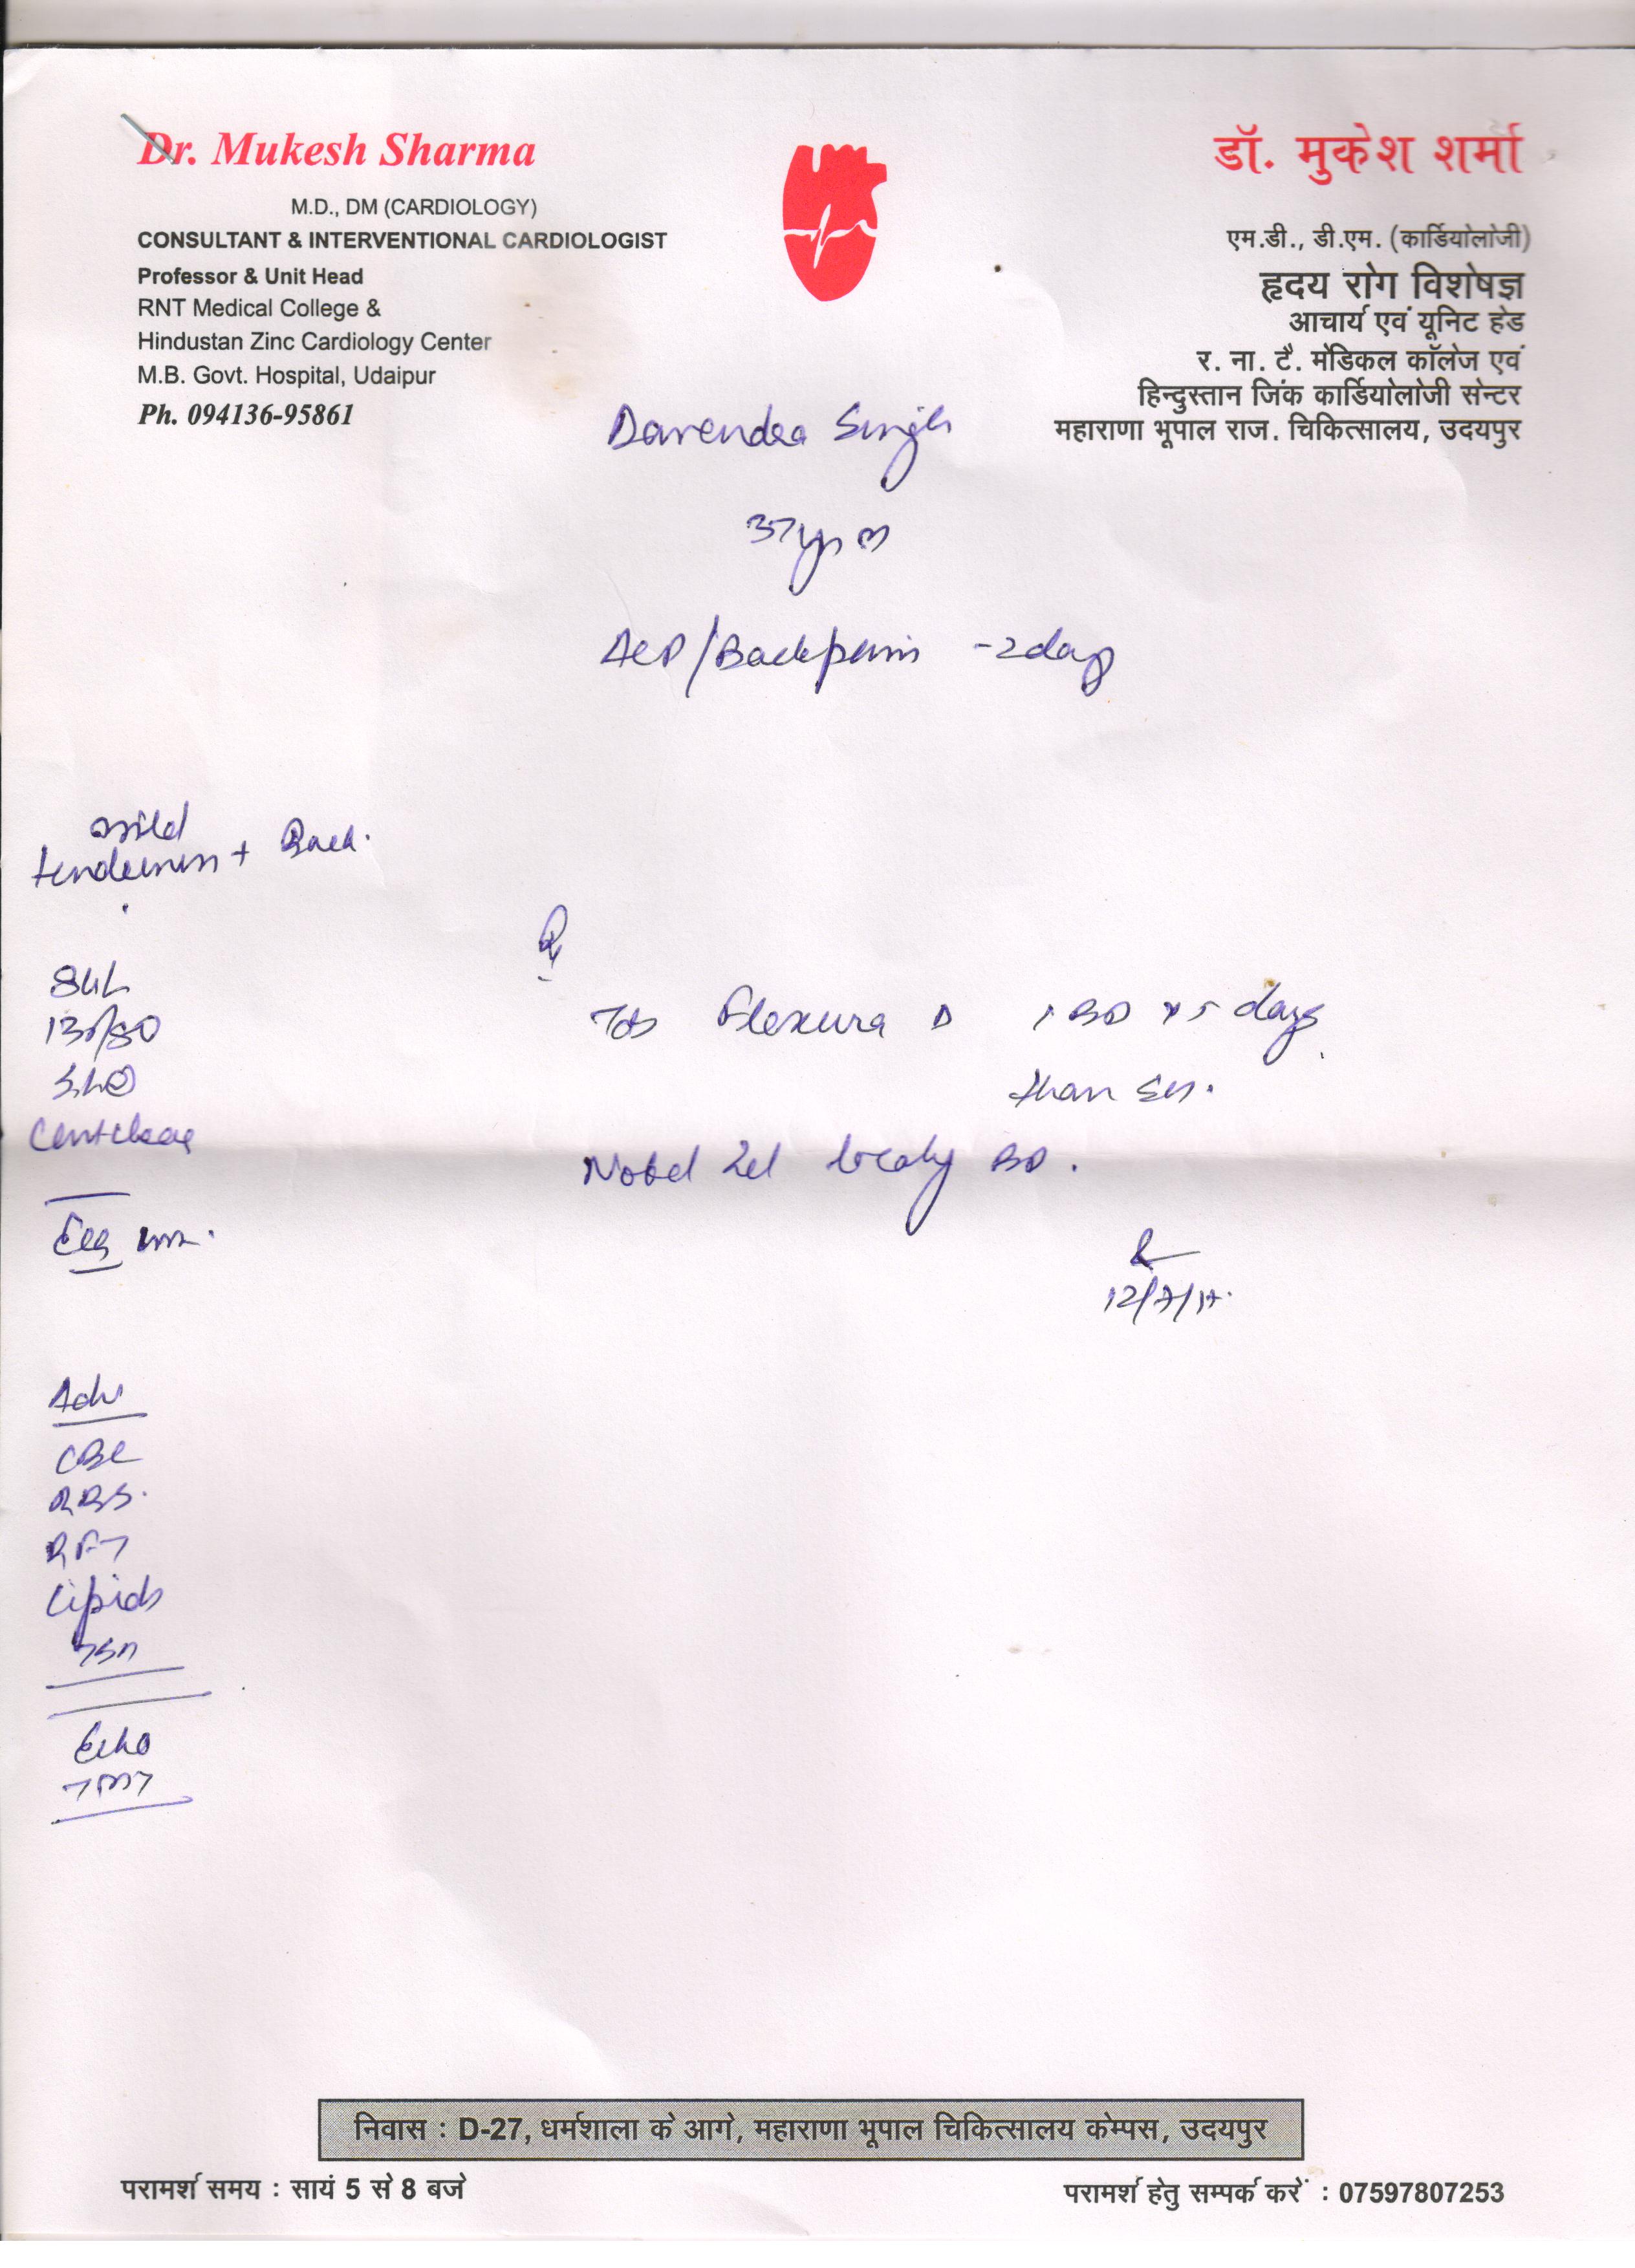 Dr. Mukesh Sharma
M.D., DM (CARDIOLOGY)
CONSULTANT & INTERVENTIONAL CARDIOLOGIST
Professor & Unit Head
RNT Medical College &
Hindustan Zinc Cardiology Center
M.B. Govt. Hospital, Udaipur
Ph. 094136-95861
डॉ. मुकेश शर्मा
एम.डी., डी.एम. (कार्डियोलोजी)
हृदय रोग विशेषज्ञ
आचार्य एवं यूनिट हेड
र. ना. टै. मेडिकल कॉलेज एवं
हिन्दुस्तान जिंक कार्डियोलोजी सेन्टर
महाराणा भूपाल राज. चिकित्सालय, उदयपुर
Singh
37yrs M
/Backpain -2days
mild
tenderness + Back.
130/80
Chest clear
Rx
Tab Flexura D 1 BD x 5 days
than SOS.
gel locally BD.
Ecg
12/7/17.
Adv
CBC
RBS.
RFT
Lipids
TSH
Echo
TMT
निवास : D-27, धर्मशाला के आगे, महाराणा भूपाल चिकित्सालय केम्पस, उदयपुर
परामर्श समय : सायं 5 से 8 बजे
परामर्श हेतु सम्पर्क करें : 07597807253